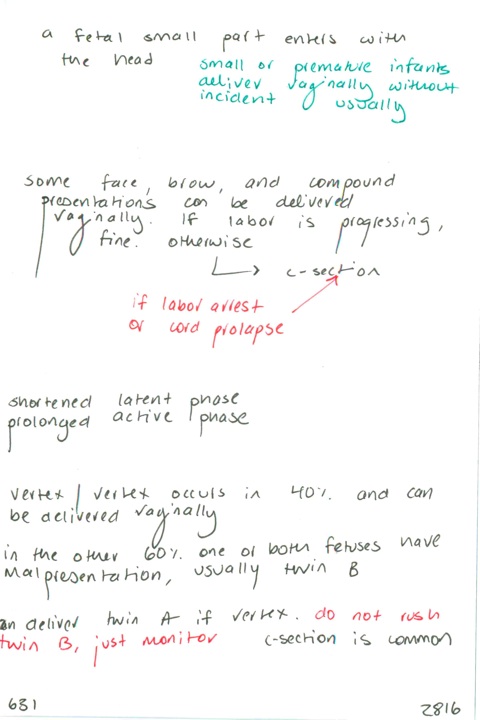 a fetal small part enters with
the head
small or premature infants
deliver vaginally without
incident usually
some face, brow, and compound
presentations can be delivered
vaginally. If labor is progressing,
fine. otherwise
c-section
if labor arrest
or cord prolapse
shortened latent phase
prolonged active phase
vertex / vertex occurs in 40% and can
be delivered vaginally
in the other 60% one or both fetuses have
malpresentation, usually twin B
an deliver twin A if vertex. do not rush
twin B, just monitor c-section is common
631
2816